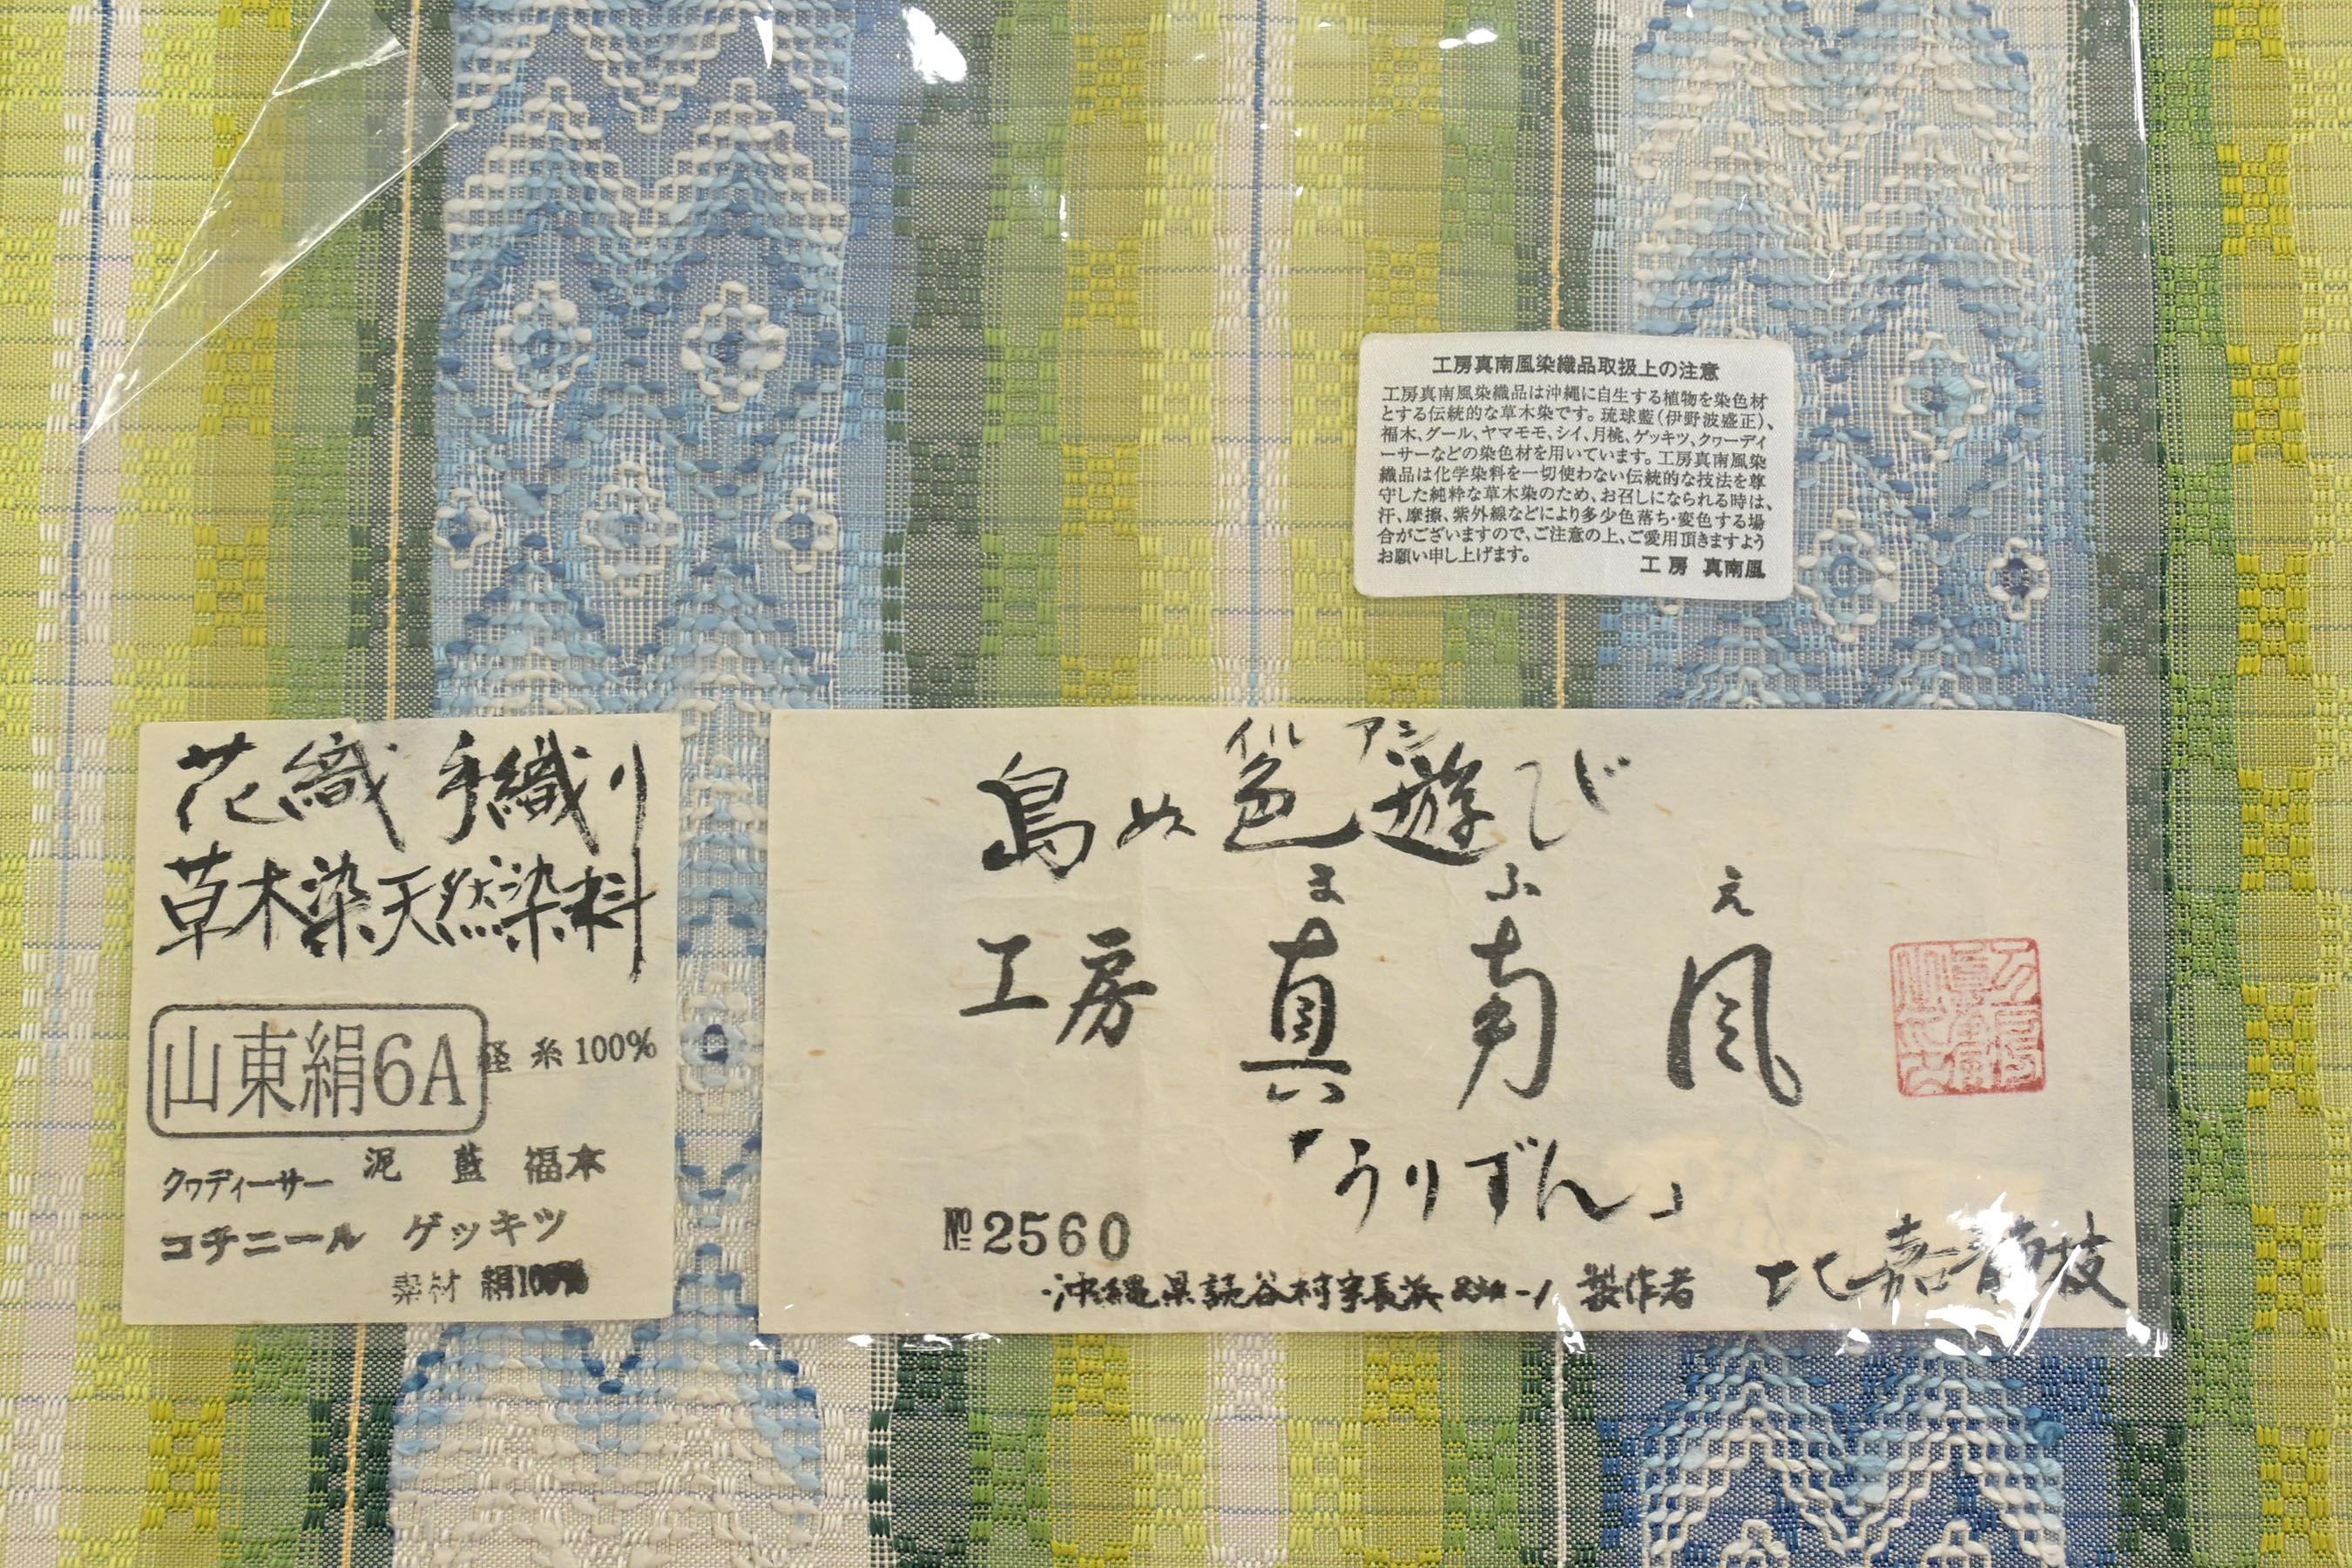 工房真南風染織品取扱上の注意
工房真南風染織品は沖縄に自生する植物を染色材
とする伝統的な草木染です。琉球藍(伊野波盛正)、
福木、グール、ヤマモモ、シイ、月桃、ゲッキツ、クヮーディ
ーサーなどの染色材を用いています。工房真南風染
織品は化学染料を一切使わない伝統的な技法を尊
守した純粋な草木染のため、お召しになられる時は、
汗、摩擦、紫外線などにより多少色落ち・変色する場
合がございますので、ご注意の上、ご愛用頂きますよう
お願い申し上げます。
工房 真南風
花織 手織り
草木染天然染料
山東絹6A 経糸100%
クワディーサー 泥 藍 福木
コチニール ゲッキツ
素材 絹100%
イル アシ
島ぬ色遊び
ま ふ え
工房 真南風
「うりずん」
№2560
沖縄県読谷村字長浜 製作者 比嘉